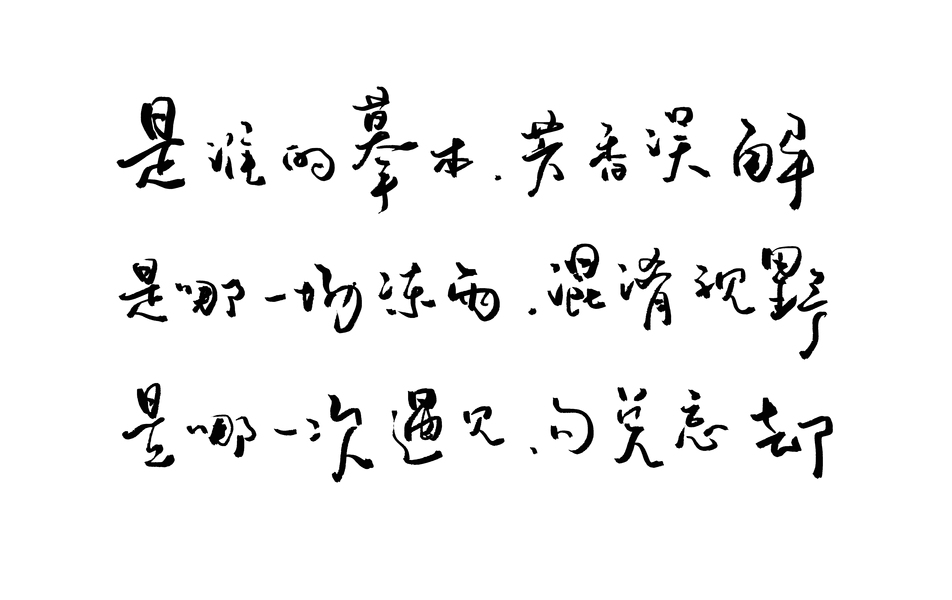 是谁的摹本,芳香误解
是哪一场冻雨,混淆视野
是哪一次遇见,勾兑忘却